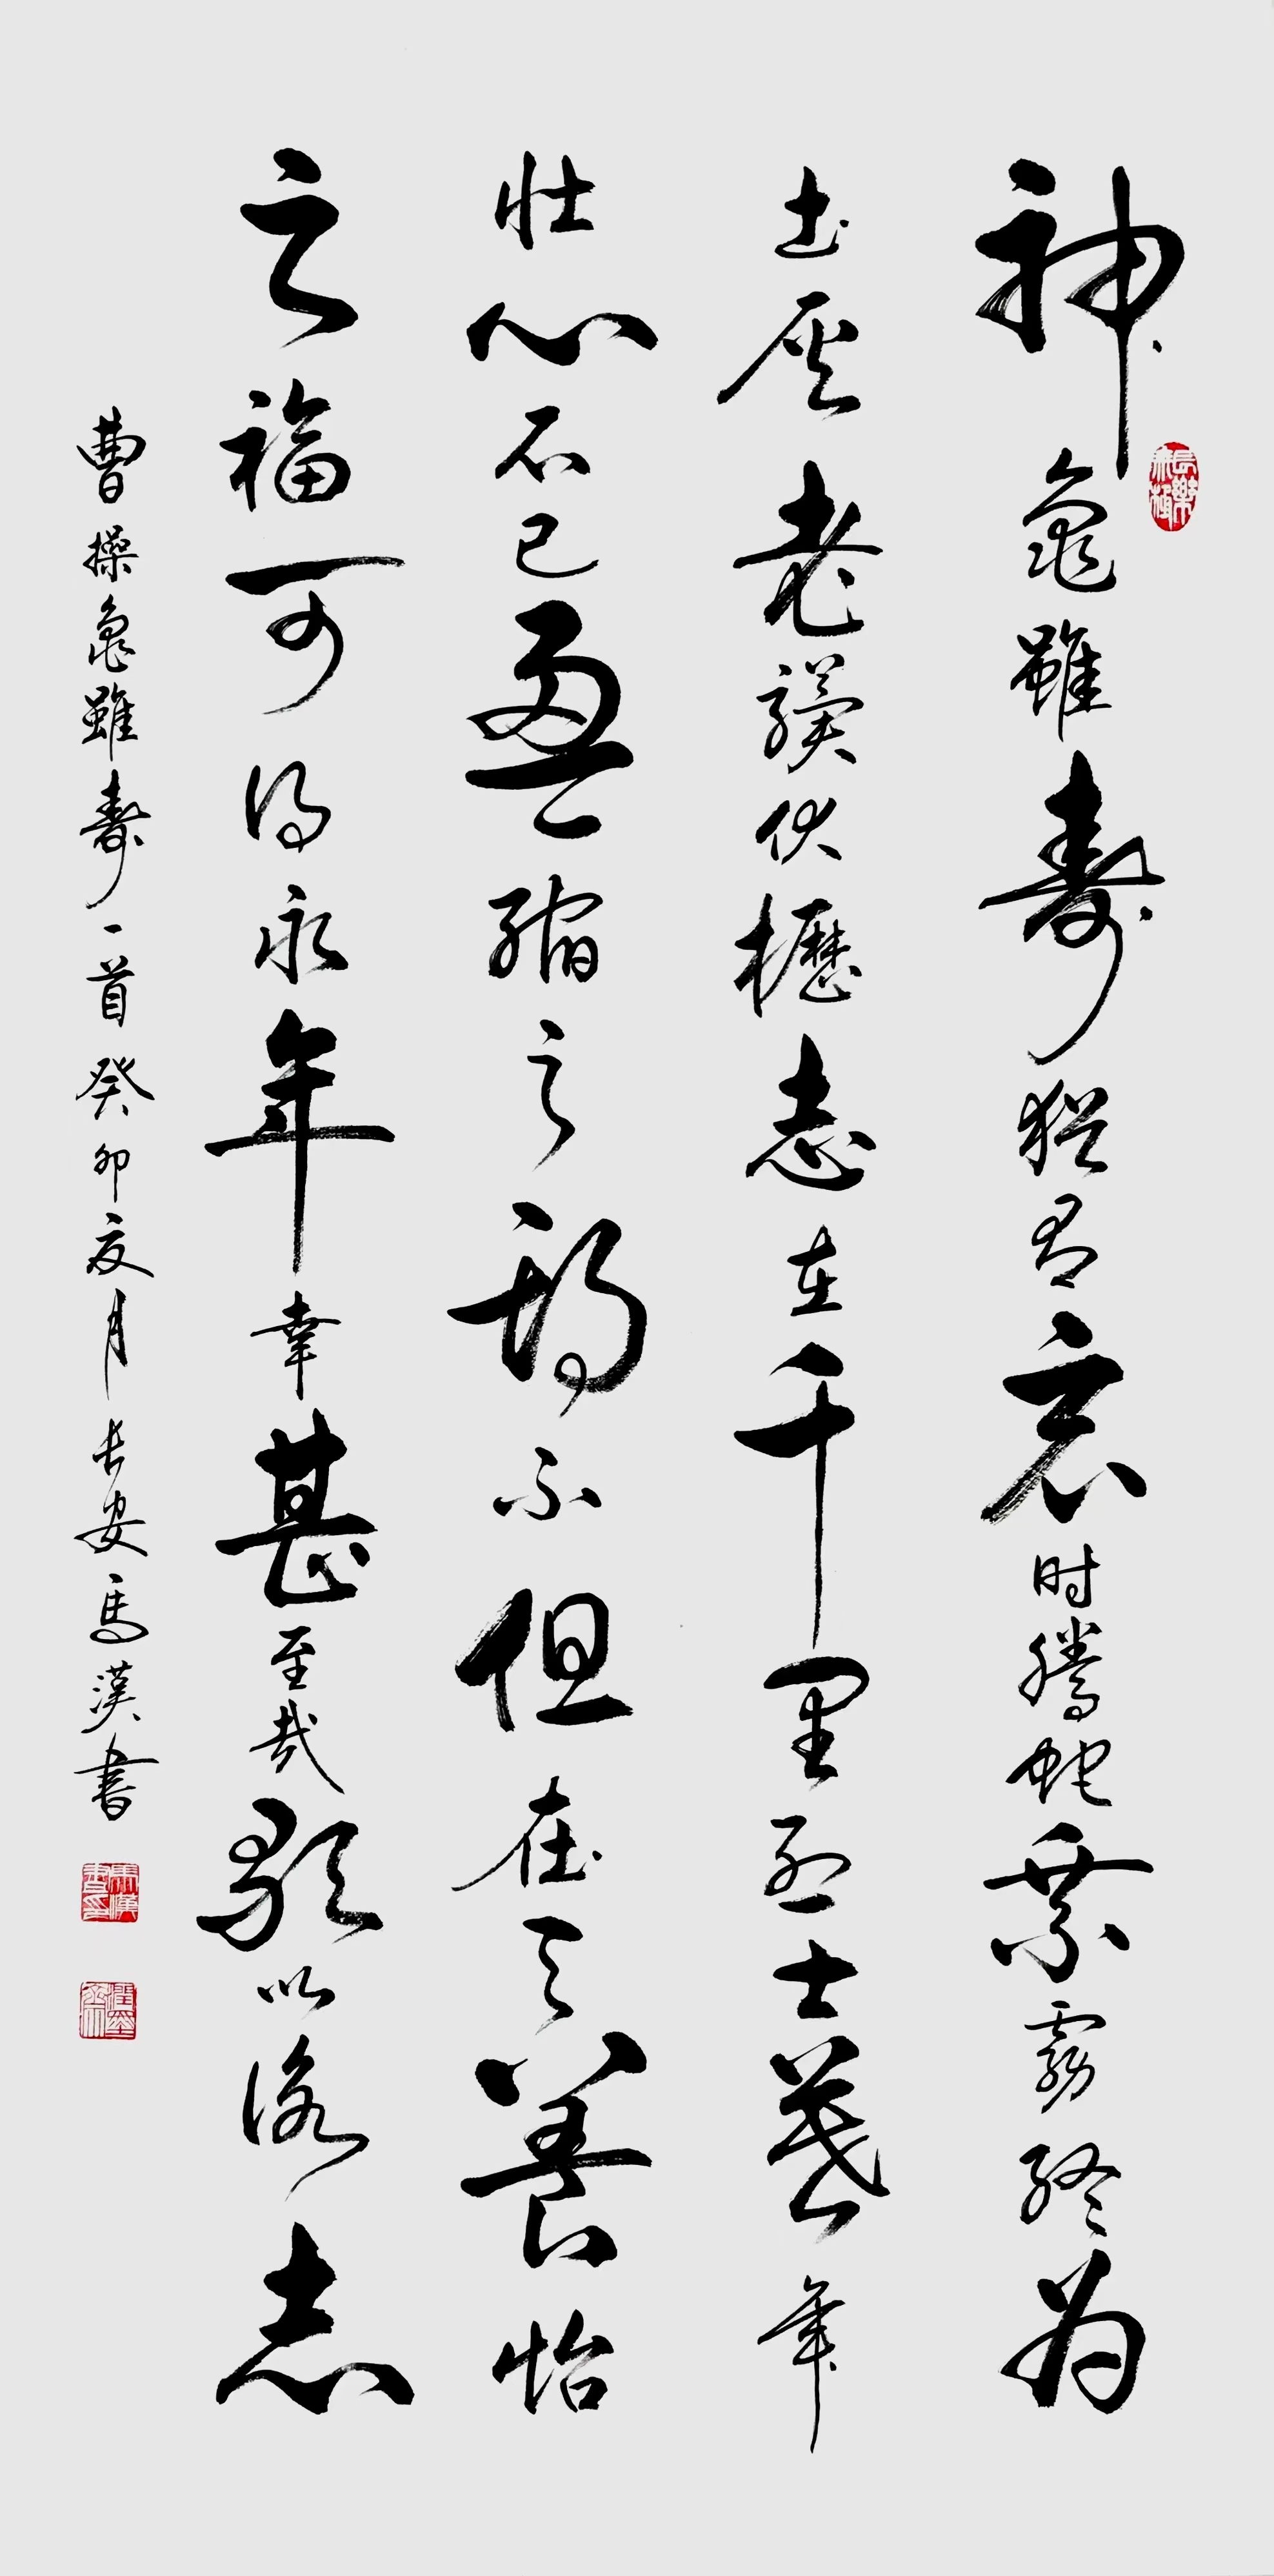 神龜雖壽猶有竟时騰蛇乘霧終为
土灰老驥伏櫪志在千里烈士暮年
壮心不已盈縮之期不但在天養怡
之福可得永年幸甚至哉歌以詠志
曹操龜雖壽一首癸卯夏月長安馬漢書
馬漢書印